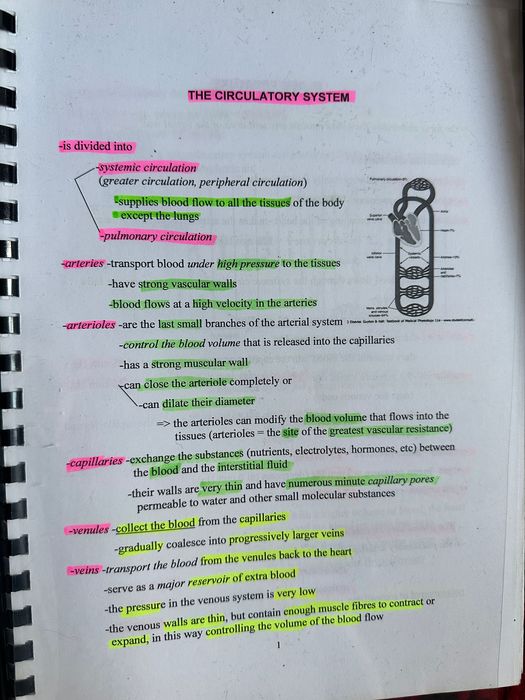 THE CIRCULATORY SYSTEM
-is divided into
-systemic circulation
(greater circulation, peripheral circulation)
-supplies blood flow to all the tissues of the body
except the lungs
-pulmonary circulation
-arteries -transport blood under high pressure to the tissues
-have strong vascular walls
-blood flows at a high velocity in the arteries
-arterioles -are the last small branches of the arterial system
-control the blood volume that is released into the capillaries
-has a strong muscular wall
-can close the arteriole completely or
-can dilate their diameter
=> the arterioles can modify the blood volume that flows into the
tissues (arterioles = the site of the greatest vascular resistance)
-capillaries -exchange the substances (nutrients, electrolytes, hormones, etc) between
the blood and the interstitial fluid
-their walls are very thin and have numerous minute capillary pores
permeable to water and other small molecular substances
-venules -collect the blood from the capillaries
-gradually coalesce into progressively larger veins
-veins -transport the blood from the venules back to the heart
-serve as a major reservoir of extra blood
-the pressure in the venous system is very low
-the venous walls are thin, but contain enough muscle fibres to contract or
expand, in this way controlling the volume of the blood flow
1